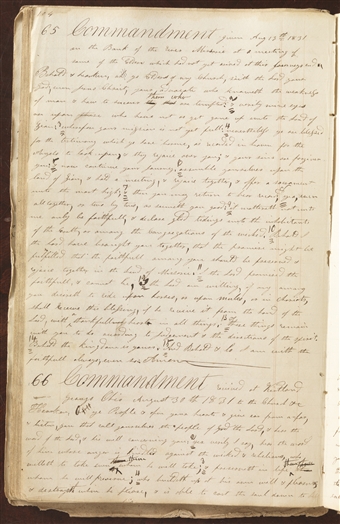 104
65 Commandment given Aug 13th 1831
on the Bank of the River Missouri at a meeting of
some of the Elders which had not yet arived at their journeys end
Behold & hearken O ye Elders of my Church saith the Lord your
God even Jesus Christ your advocate who knoweth the weakness
of man & how to succor them who are tempted & verily mine eyes
are upon those who have not as yet gone up unto the land of
Zion wherefore your mission is not yet full nevertheless ye are blessed
for the testimony which ye have borne is recorded in heaven for the
Angels to look upon & they rejoice over you & your sins are forgiven
you & now continue your journey assemble yourselves upon the
land of Zion & hold a meeting & rejoice together & offer a sacrament
unto the most high & then you may return to bear record yea even
all together or two by two as seemeth you good it mattereth not unto
me only be faithful & declare glad tidings unto the inhabitants
of the Earth or among the congregations of the wicked Behold I
the Lord have brought you together that the promise might be
fulfilled that the faithful among you should be preserved &
rejoice together in the land of Missorie I the Lord promised the
faithful & cannot lie I the Lord am willing if any among
you desireth to ride upon horses or upon mules or in chariots
shall receive this blessing if he receive it from the hand of the
Lord with a thankful heart in all things These things remain
with you to do according to judgement & the directions of the spirit
Behold the kingdom is yours And Behold & lo I am with the
faithful always even so Amen
66 Commandment received at Kirtland
Geauga Ohio August 30th 1831 to the Church
Hearken O ye People & open your hearts & give ear from afar
& listen you that call yourselves the people of the Lord & hear the
word of the Lord & his will concerning you yea verily I say hear the word
of him whose anger is kindled against the wicked & rebelious who
willeth to take even them whom he will take & preserveth in life them
whom he will preserve who buildeth up at his own will & pleasure
& destroyeth when he please & is able to cast the soul down to hell